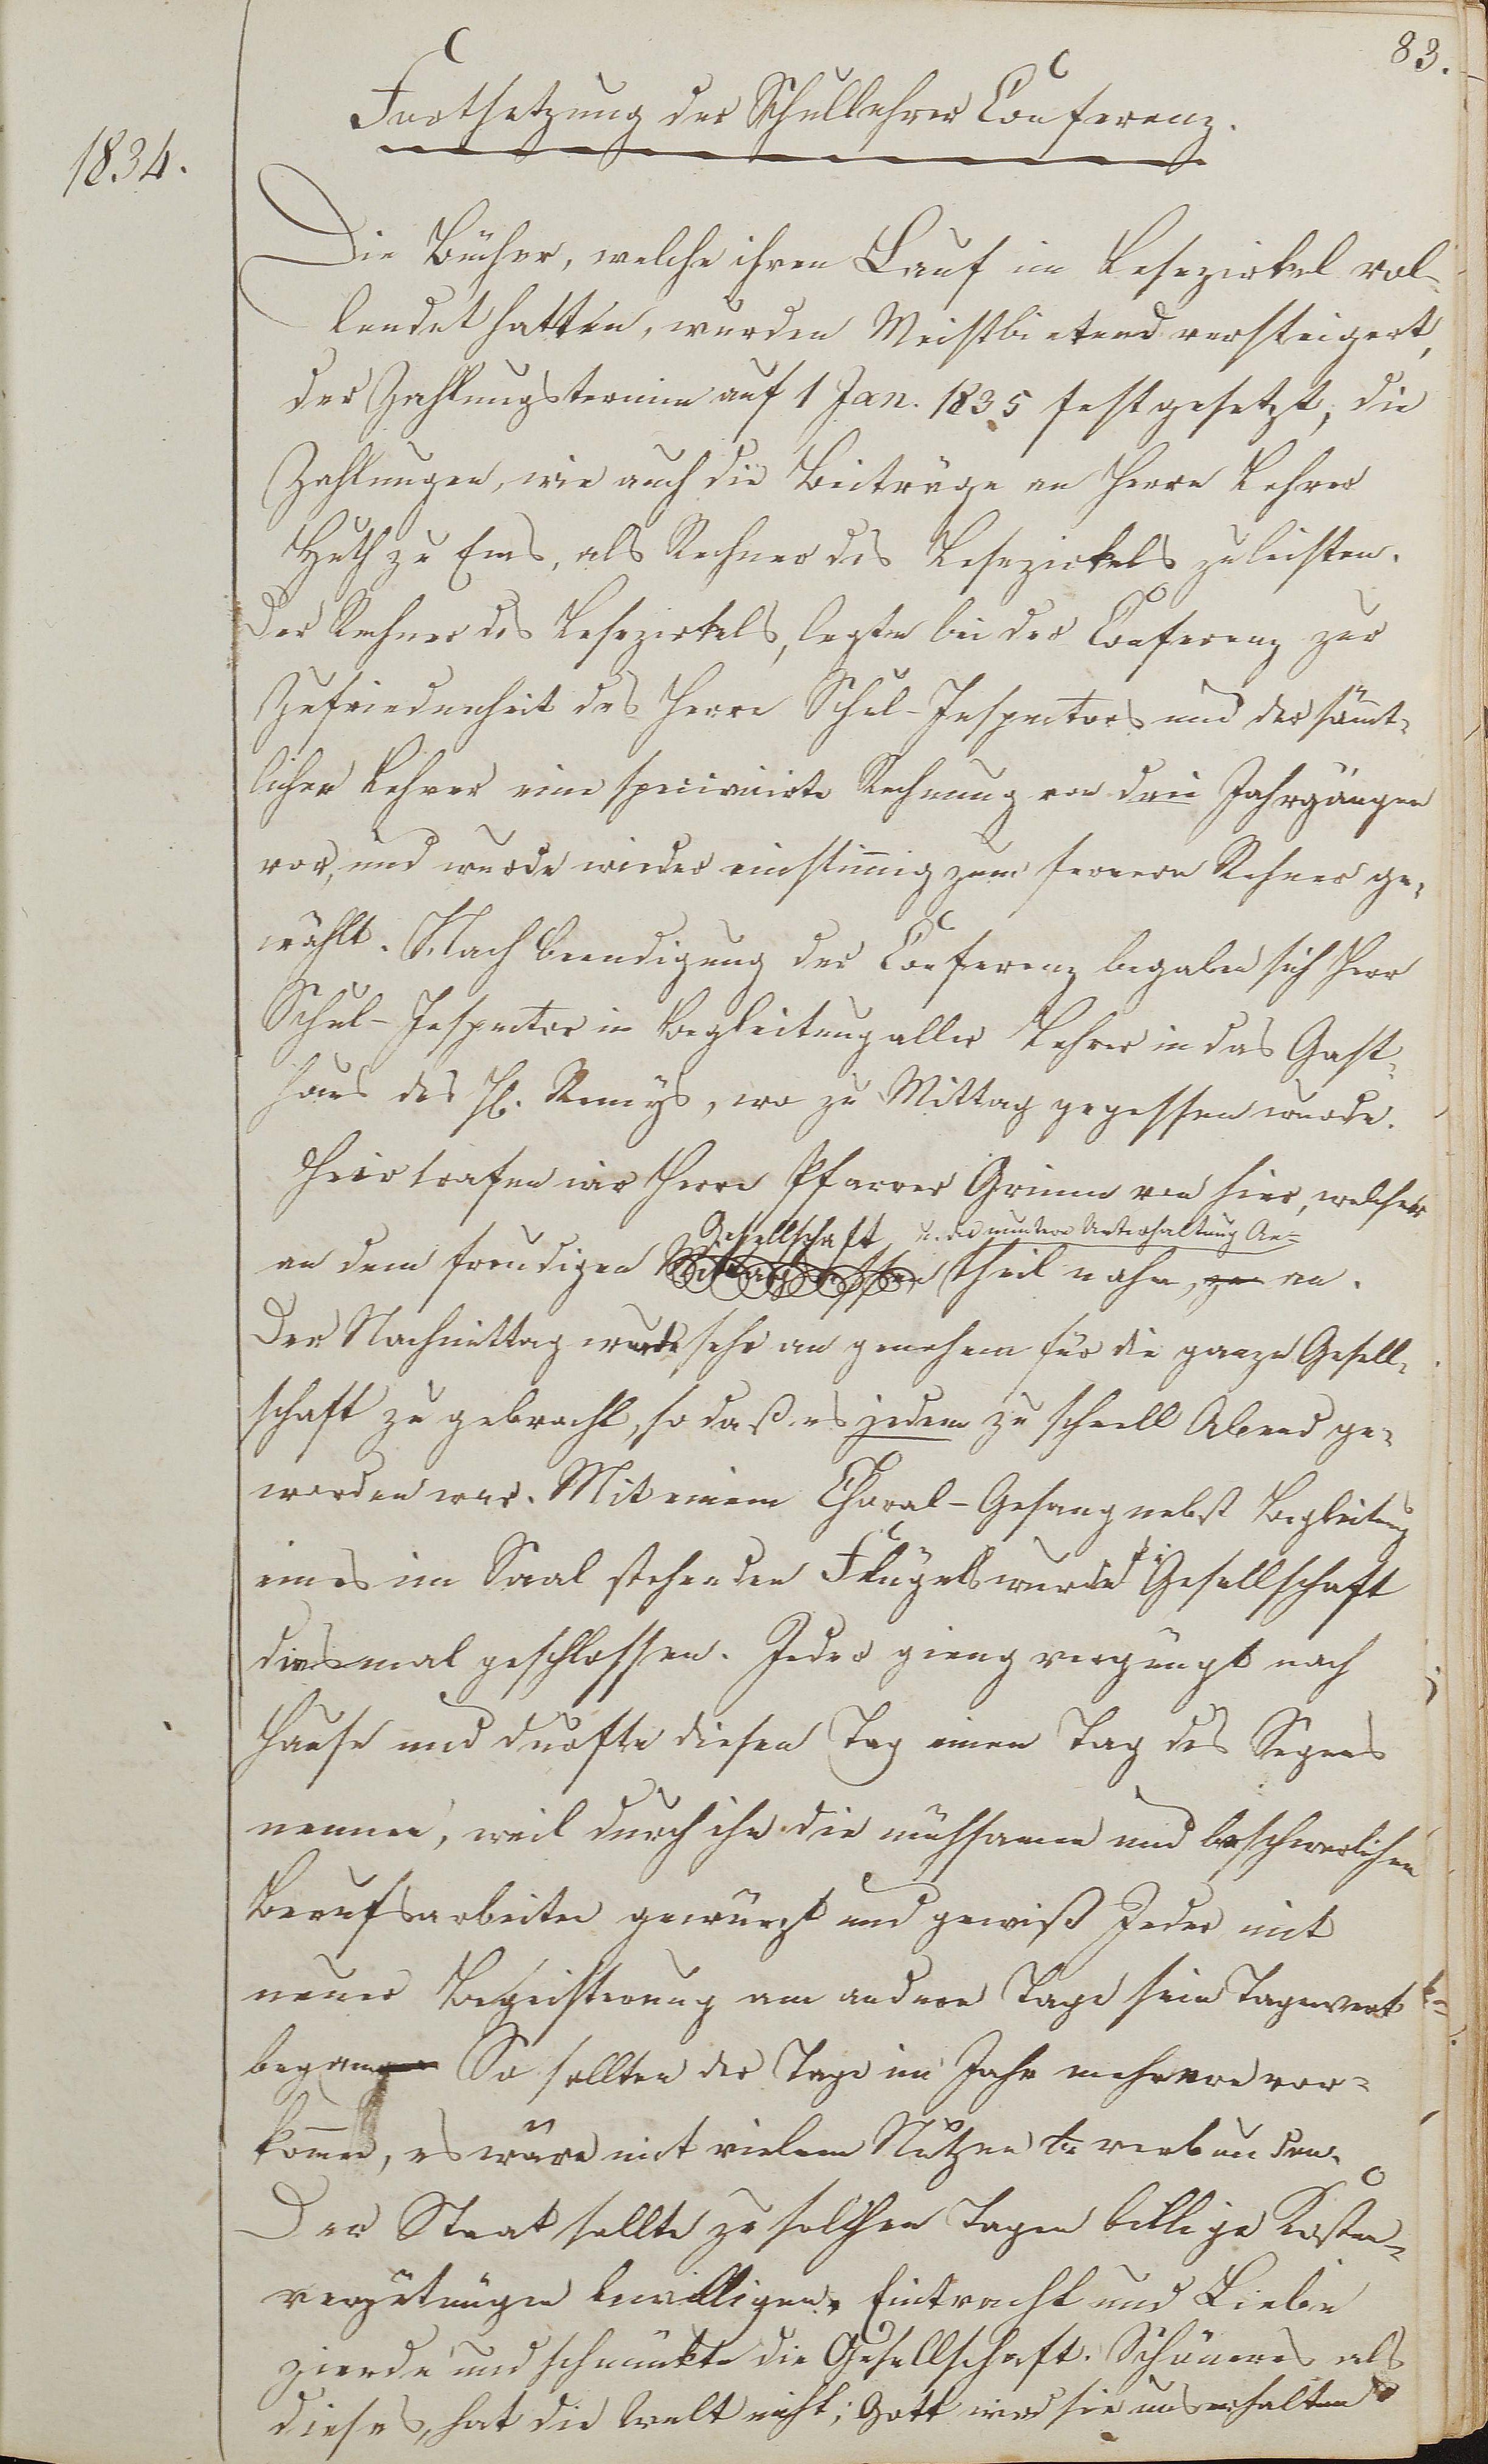 83.
Fortsetzung der Schullehrer Conferenz.
1834.
Die Bücher, welche ihren Lauf im Lesezirkel vol-
lendet hatten, wurden Meistbietend versteigert,
der Zahlungstermin auf 1 Jan. 1835 festgesetzt, die
Zahlungen, wie auch die Beiträge an Herrn Lehrer
Huth zu Ems, als Rechner des Lesezirkels zu leisten.
Der Rechner des Lesezirkels, legte bei der Conferenz zur
Zufriedenheit des Herrn Schul-Inspectors und der sämt-
licher Lehrer eine specivicirte Rechnung von drei Jahrgängen
vor, und wurde wieder einstimig zum fernern Rechner ge-
wählt. Nach Beendigung der Conferenz begaben sich Herr
Schul-Inspector in Begleitung aller Lehrer in das Gast-
haus des H. Remys, wo zu Mittag gegessen wurde.
Hier trafen wir Herrn Pfarrer Grimm von hier, welcher
Gesellschaft u. der muntern Unterhaltung An-
an dem freudigen theil nahm, an.
Der Nachmittag wurde sehr an genehm für die ganze Gesell-
schaft zu gebracht, so daß es jedem zu schnell Abend ge-
worden war. Mit einem Choral-Gesang nebst Begleitung
eines im Saal stehenden Flügels wurde die Gesellschaft
diesmal geschlossen. Jeder gieng vergnügt nach
Hause und durfte diesen Tag einen Tag des Segens
nennen, weil durch ihn die mühsamen und beschwerlichen
Berufsarbeiten gewürzt und gewiß Jeder mit
neuer Begeisterung am andern Tage sein Tagewerk
began So sollten der Tage im Jahr mehrere vor-
komen, es wäre mit vielem Nutzen verbunden.
Der Staat sollte zu solchen Tagen billige Kosten-
vergütungen bewilligen. Eintracht und Liebe
zierde und schmückte die Gesellschaft. Schöneres als
dieses, hat die Welt nicht; Gott wird sie uns erhalten